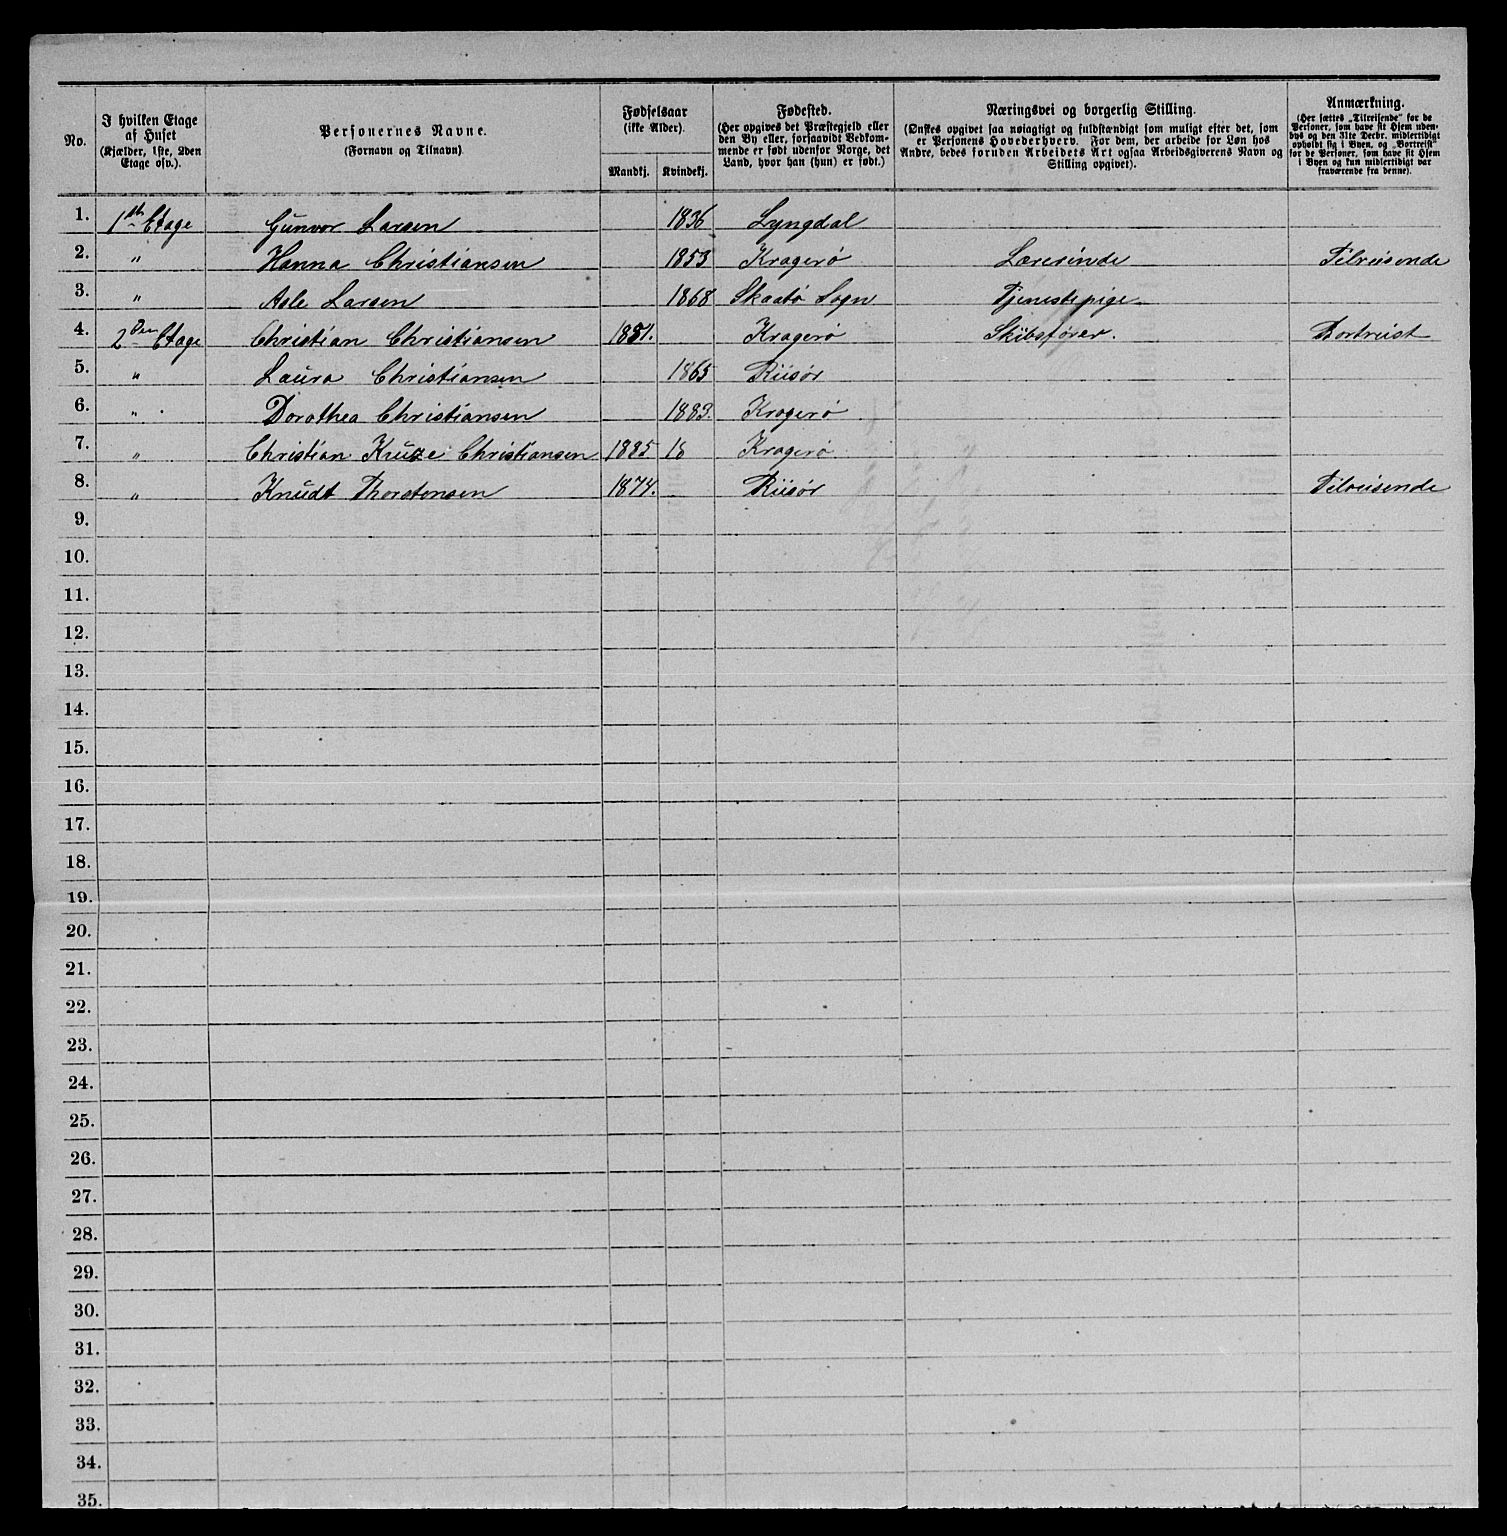 No. | I hvilken Etage af Huset (Kjælder, 1ste, 2den Etage osv.). | Personernes Navne. (Fornavn og Tilnavn) | Fødselsaar (ikke Alder). Mandkj. | Kvindekj. | Fødested. (Her opgives det Præstegjeld eller den By eller, forsaavidt Vedkommende er født udenfor Norge, det Land, hvor han (hun) er født.) | Næringsvei og borgerlig Stilling. (Ønskes opgivet saa nøiagtigt og fuldstændigt som muligt efter det, som er Personens Hovederhverv. For dem, der arbeide for Løn hos Andre, bedes foruden Arbeidets Art ogsaa Arbeidsgiverens Navn og Stilling opgivet). | Anmærkning. (Her sættes „Tilreisende“ for de Personer, som have sit Hjem udenbys og den 31te Decbr. midlertidigt opholdt sig i Byen, og „Bortreist“ for de Personer, som have sit Hjem i Byen og kun midlertidigt var fraværende fra denne).
1. 1ste Etage Gunvor Larsen 1836 Lyngdal
2. " Hanna Christiansen 1853 Kragerø Lærerinde Tilreisende
3. " Asle Larsen 1868 Skaatø Sogn Tjenestepige
4. 2den Etage Christian Christiansen 1851. Kragerø Skibsfører. Bortreist
5. " Laura Christiansen 1865 Riisør
6. " Dorothea Christiansen 1883. Kragerø
7. " Christian Kruze Christiansen 1885 18 Kragerø
8. " Knudt Thorstensen 1874. Riisør Tilreisende
9.
10.
11.
12.
13.
14.
15.
16.
17.
18.
19.
20.
21.
22.
23.
24.
25.
26.
27.
28.
29.
30.
31.
32.
33.
34.
35.